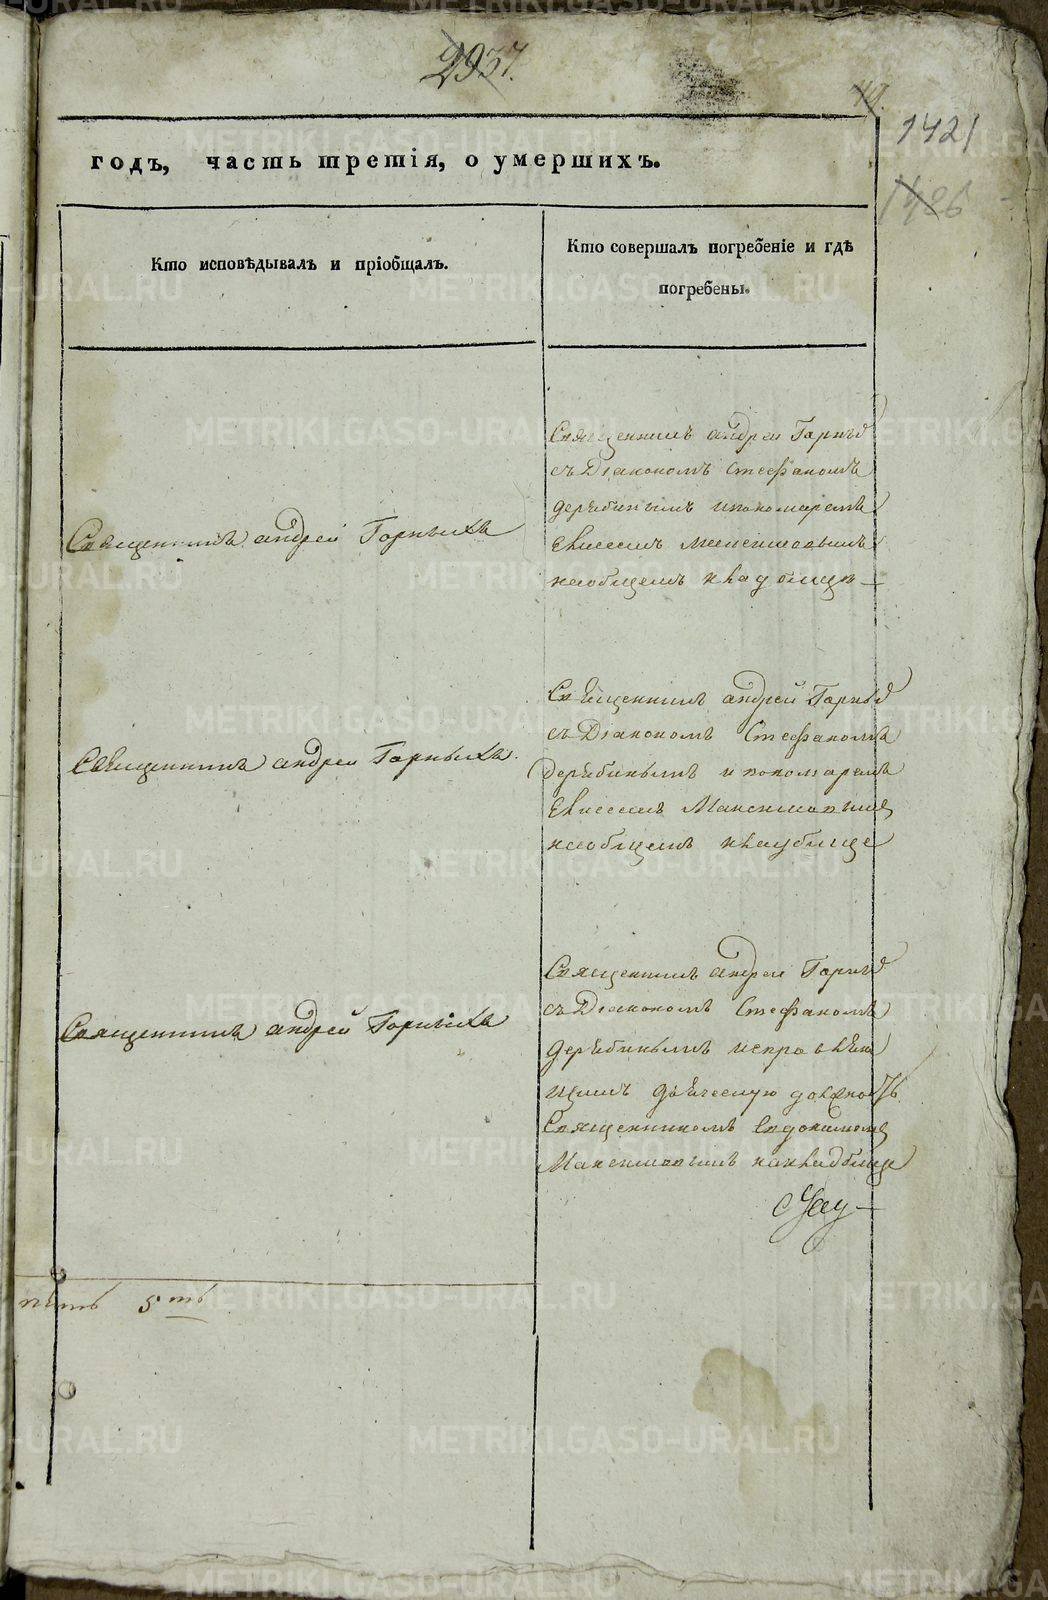 2937.
1421
годъ, часть третія, о умершихъ.
Кто исповѣдывалъ и пріобщалъ.
Кто совершалъ погребеніе и гдѣ
погребены.
Священникъ андрей Горныхъ
Священникъ андрей Горных
съ Діакономъ Стефаномъ
Дерябинымъ ипономаремъ
Елисеемъ Максимовымъ
наобщемъ кладбище
Священникъ андрей Горныхъ
Священникъ андрей Горных
съ Діакономъ Стефаномъ
Дерябинымъ и пономаремъ
Елисеемъ Максимовымъ
наобщемъ кладбище
Священникъ андрей Горныхъ
Священникъ андрей Горных
съ Діакономъ Стефаномъ
Дерябинымъ исправляю
щимъ дьяческую должность
Священникомъ Евдокимомъ
Максимовымъ накладбище
пять 5ть
METRIKI.GASO-URAL.RU